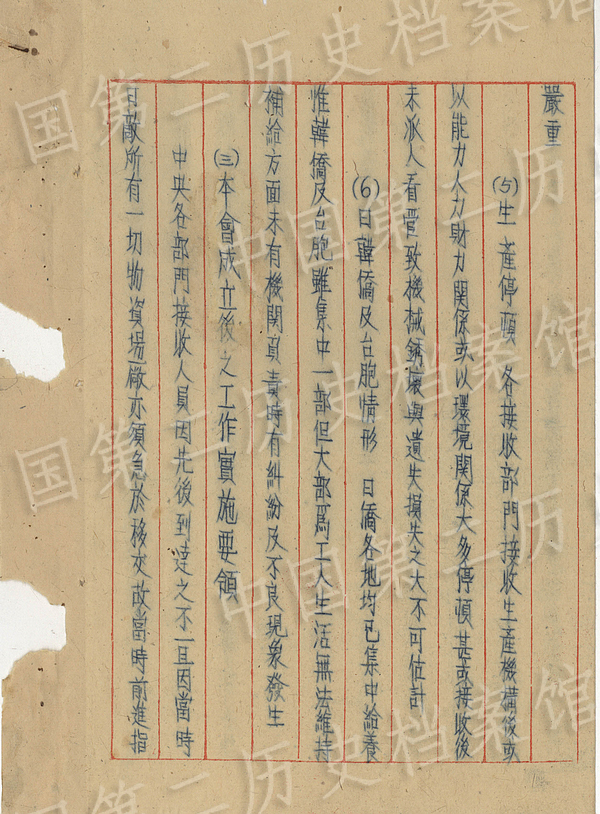 嚴重
(5)生產停頓 各接收部門接收生產機構後或
以能力人力財力關係或以環境關係大多停頓甚或接收後
未派人看管致機械銹壞與遺失損失之大不可估計
(6)日韓僑及台胞情形 日僑各地均已集中給養
惟韓僑及台胞雖集中一部但大部爲工人生活無法維持
補給方面未有機關負責時有糾紛及不良現象發生
(三)本會成立後之工作實施要領
中央各部門接收人員因先後到達之不一且因當時
日敵所有一切物資場廠亦須急於移交故當時前進指
中国第二历史档案馆